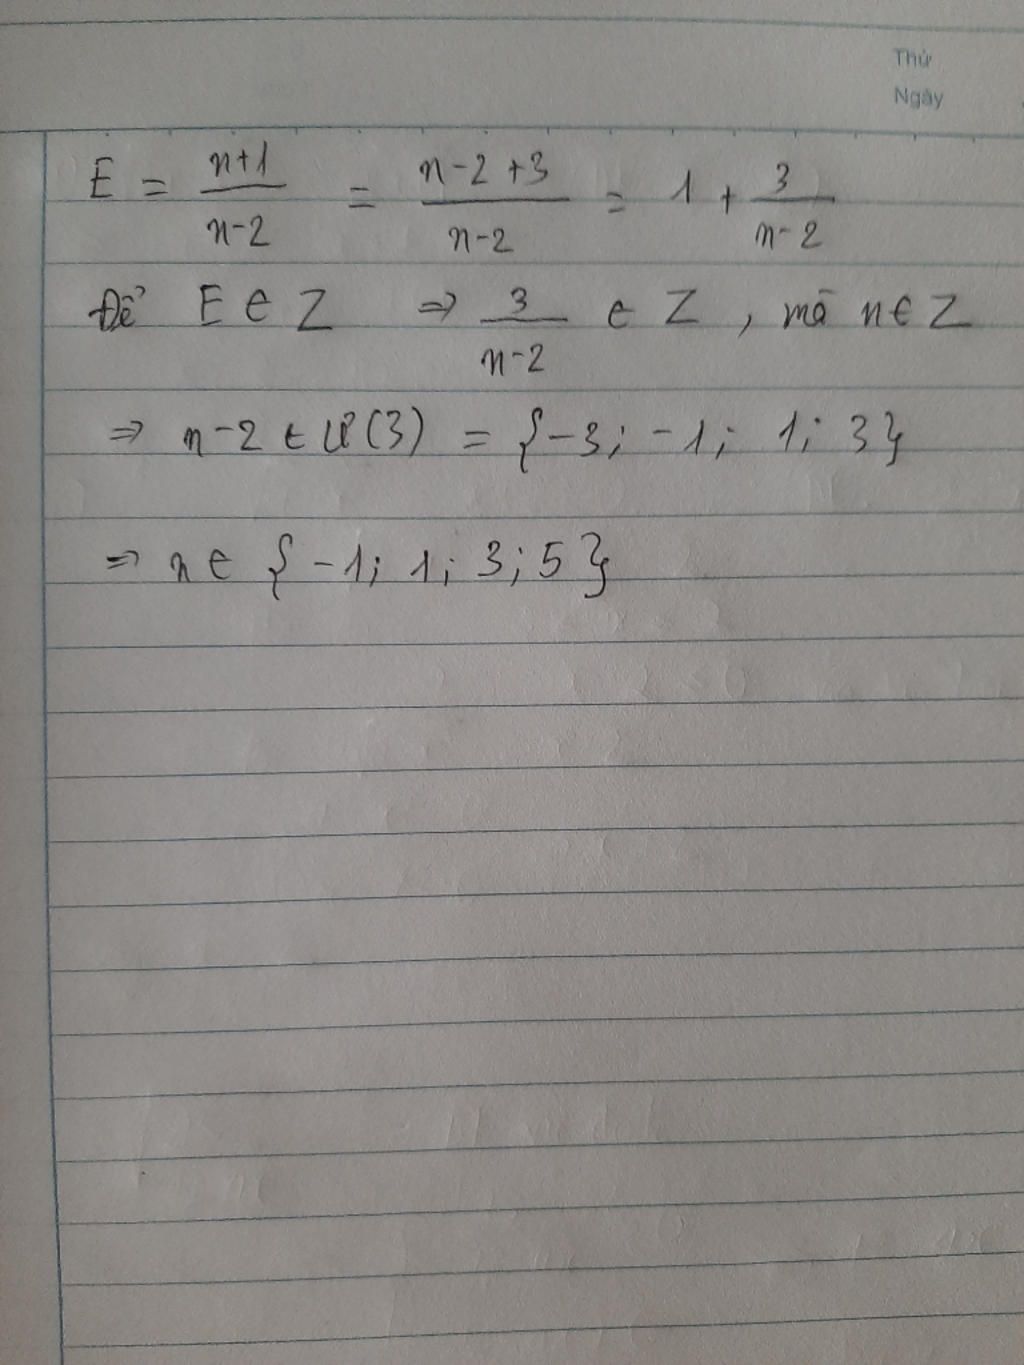 Thứ
Ngày
E = \frac{n+1}{n-2} = \frac{n-2+3}{n-2} = 1 + \frac{3}{n-2}
Để E ∈ Z ⇒ \frac{3}{n-2} ∈ Z, mà n ∈ Z
⇒ n-2 ∈ Ư(3) = {-3; -1; 1; 3}
⇒ n ∈ {-1; 1; 3; 5}